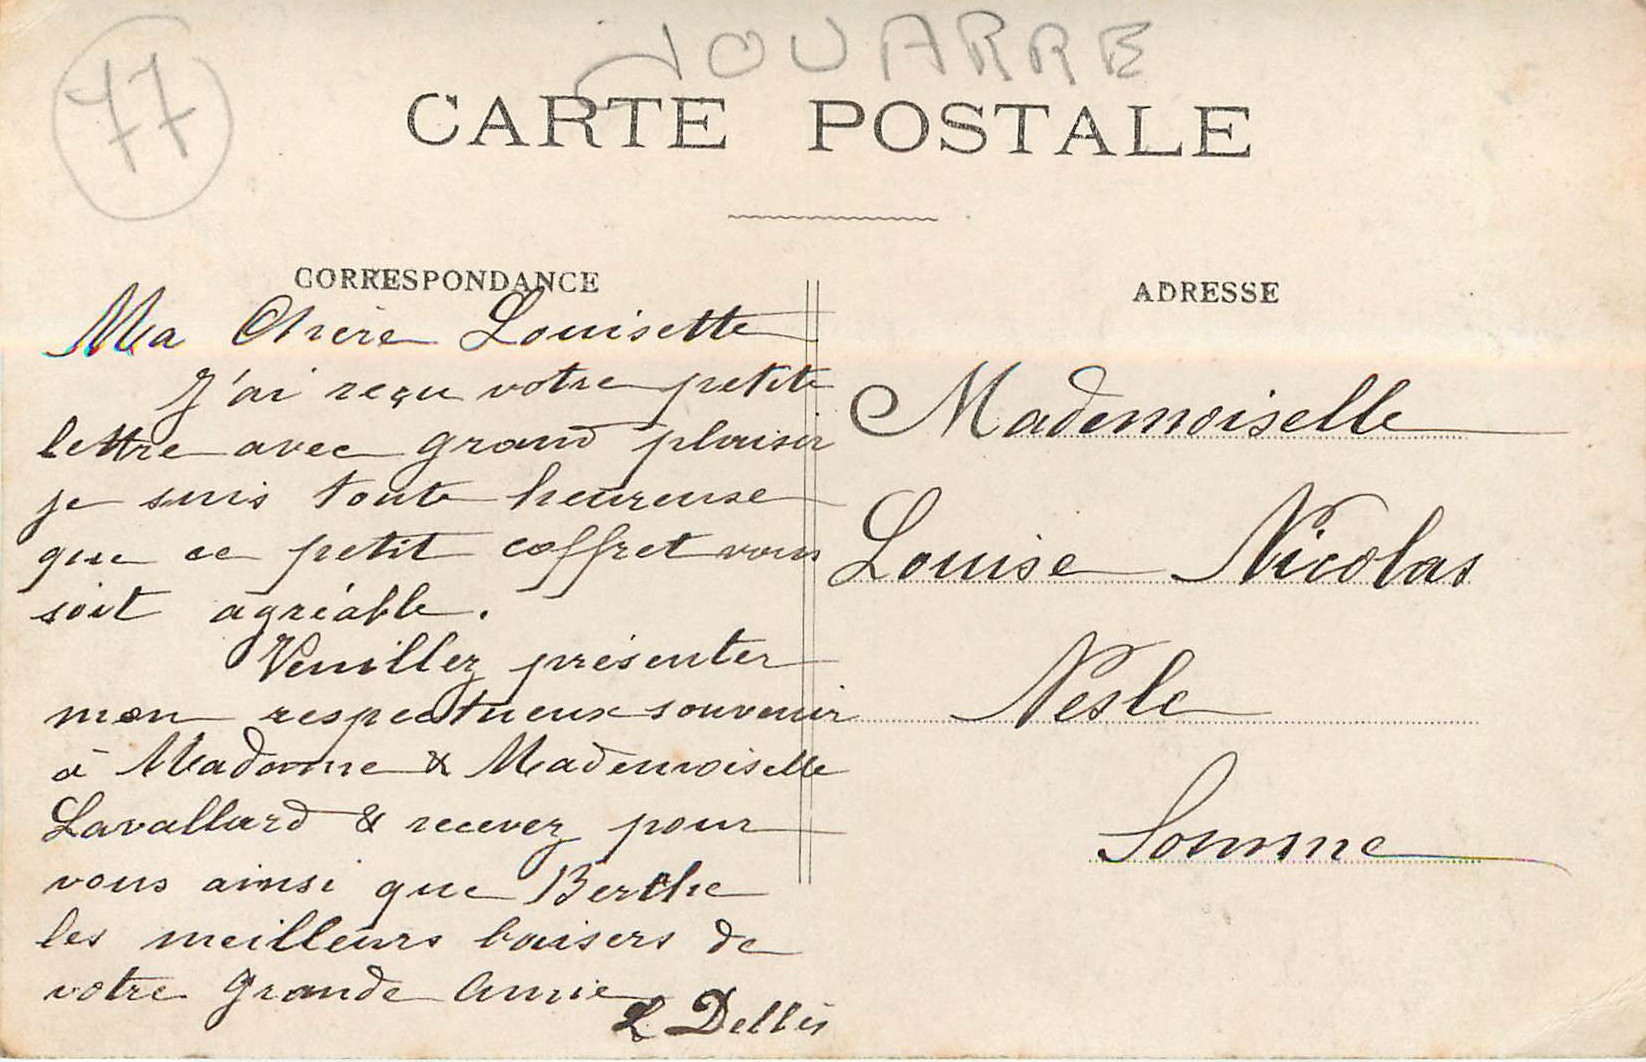 77
JOUARRE
CARTE POSTALE
CORRESPONDANCE
Ma Chère Louisette
J'ai reçu votre petite
lettre avec grand plaisir
je suis toute heureuse
que ce petit coffret vous
soit agréable.
Veuillez présenter
mon respectueux souvenir
à Madame & Mademoiselle
Lavallard & recevez pour
vous ainsi que Berthe
les meilleurs baisers de
votre grande Amie
L Dellis
ADRESSE
Mademoiselle
Louise Nicolas
Nesle
Somme